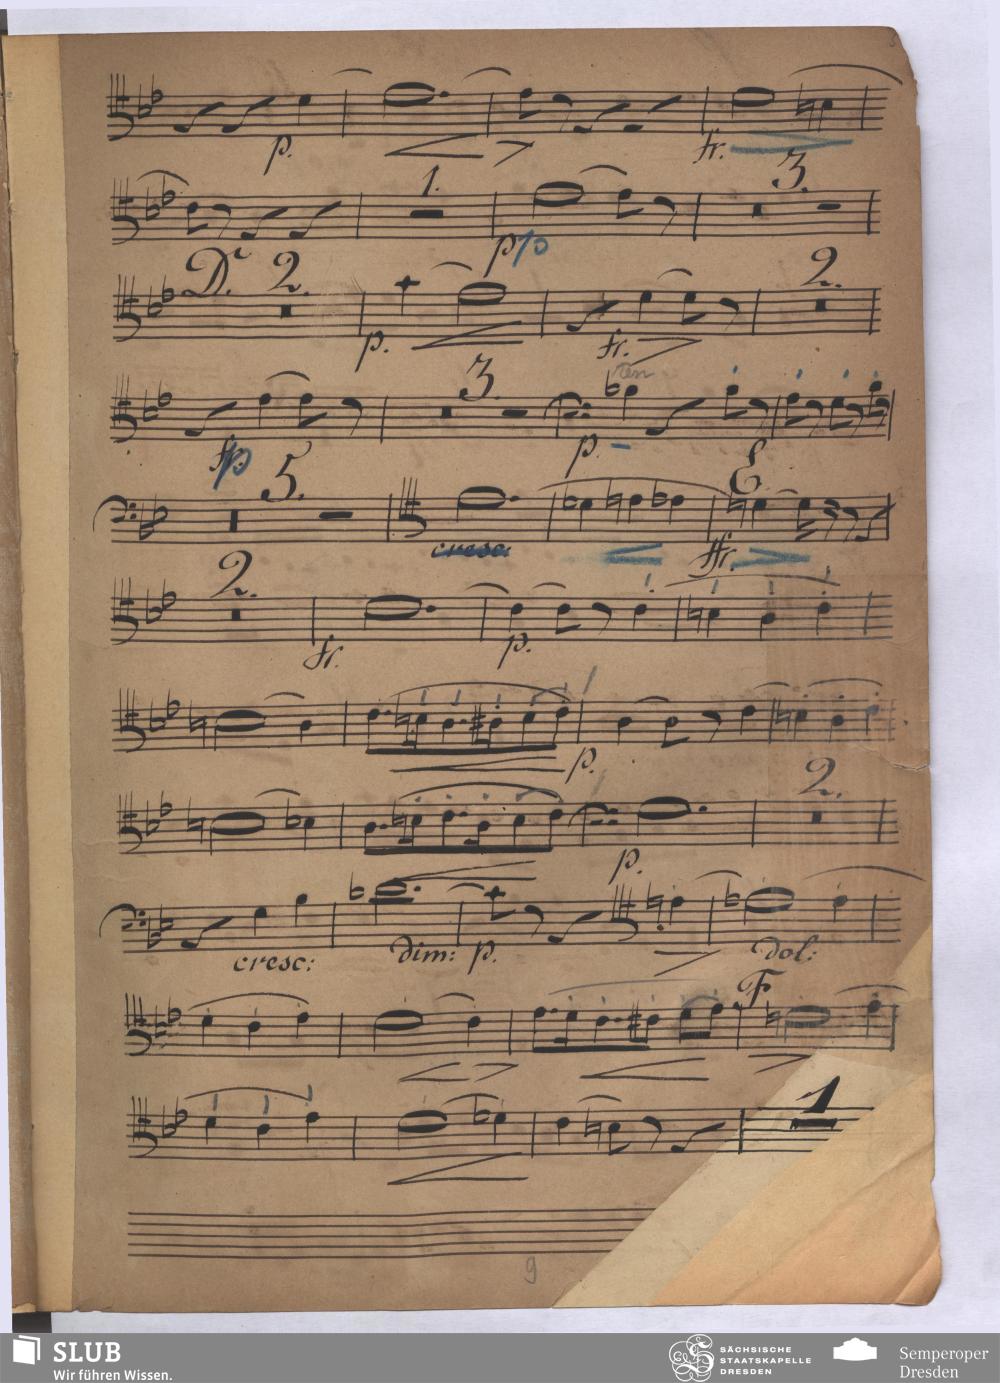 p. fr.
1. 3.
pp
D. 2. 2.
p. fr.
ten
3.
p p.
5. E
cresc ffr.
2.
fr. p.
p.
2.
p.
cresc: dim: p. dol:
F
1
9
SLUB
Wir führen Wissen.
SÄCHSISCHE
STAATSKAPELLE
DRESDEN
Semperoper
Dresden